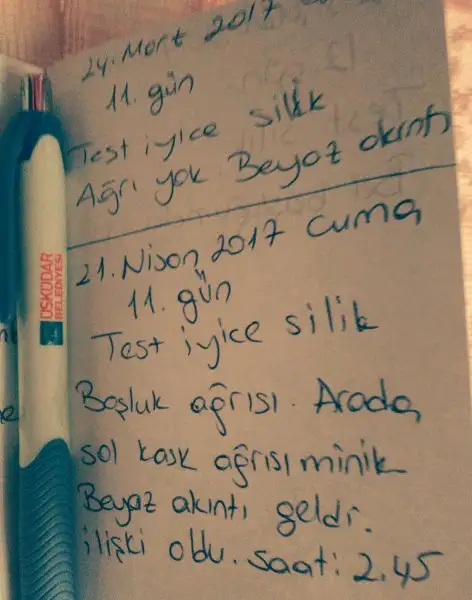 24. Mart 2017
11. gün
Test iyice silik
Ağrı yok Beyaz akıntı
21. Nisan 2017 Cuma
11. gün
Test iyice silik
Başluk ağrısı. Arada
sol kasık ağrısı minik
Beyaz akıntı geldi.
ilişki oldu. saat: 2.45
ÜSKÜDAR
BELEDİYESİ